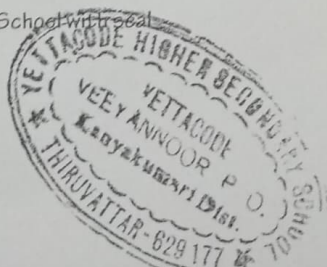 School with seal
YETTACODE HIGHER SECONDARY SCHOOL
YETTACODE
VEEYANNOOR P O.
Kanyakumari Dist.
★ THIRUVATTAR-629 177 ★